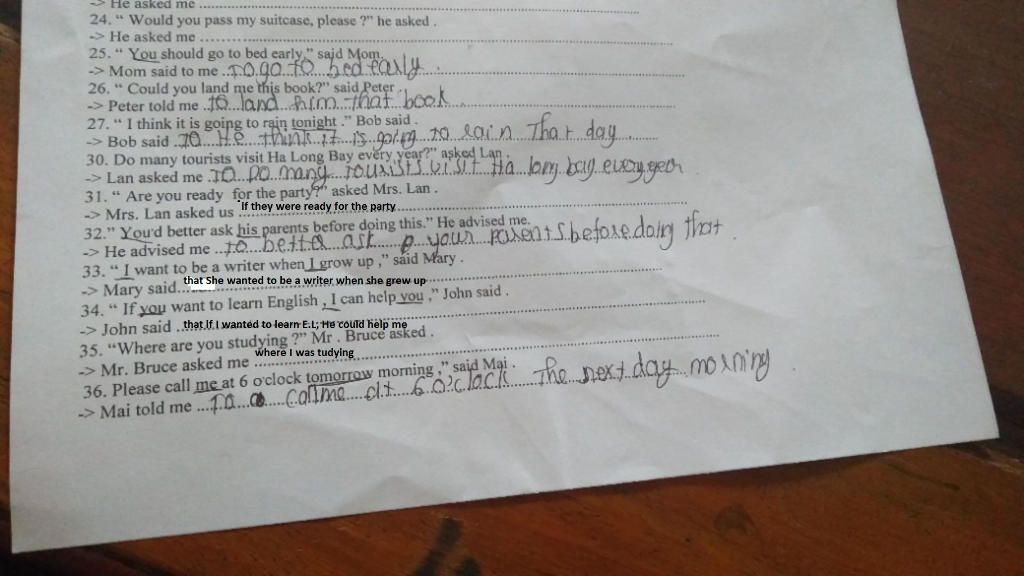 -> He asked me ..........
24. “ Would you pass my suitcase, please ?” he asked .
-> He asked me ..........
25. “ You should go to bed early,” said Mom.
-> Mom said to me ..To go to bed early.
26. “ Could you land me this book?” said Peter .
-> Peter told me ..to land him that book..
27. “ I think it is going to rain tonight .” Bob said .
-> Bob said .To He think it is going to rain That day .......
30. Do many tourists visit Ha Long Bay every year?” asked Lan .
-> Lan asked me ..To Do many tourists visit Ha long bay every year
31. “ Are you ready for the party?” asked Mrs. Lan .
-> Mrs. Lan asked us If they were ready for the party
32.” You'd better ask his parents before doing this.” He advised me.
-> He advised me ...to better ask your parents before doing that
33. “ I want to be a writer when I grow up ,” said Mary .
-> Mary said... that She wanted to be a writer when she grew up
34. “ If you want to learn English , I can help you ,” John said .
-> John said ... that if I wanted to learn E.L; He could help me
35. “Where are you studying ?” Mr . Bruce asked .
-> Mr. Bruce asked me where I was tudying
36. Please call me at 6 o'clock tomorrow morning ,” said Mai .
-> Mai told me ...To call me at 6 o'clock The next day morning